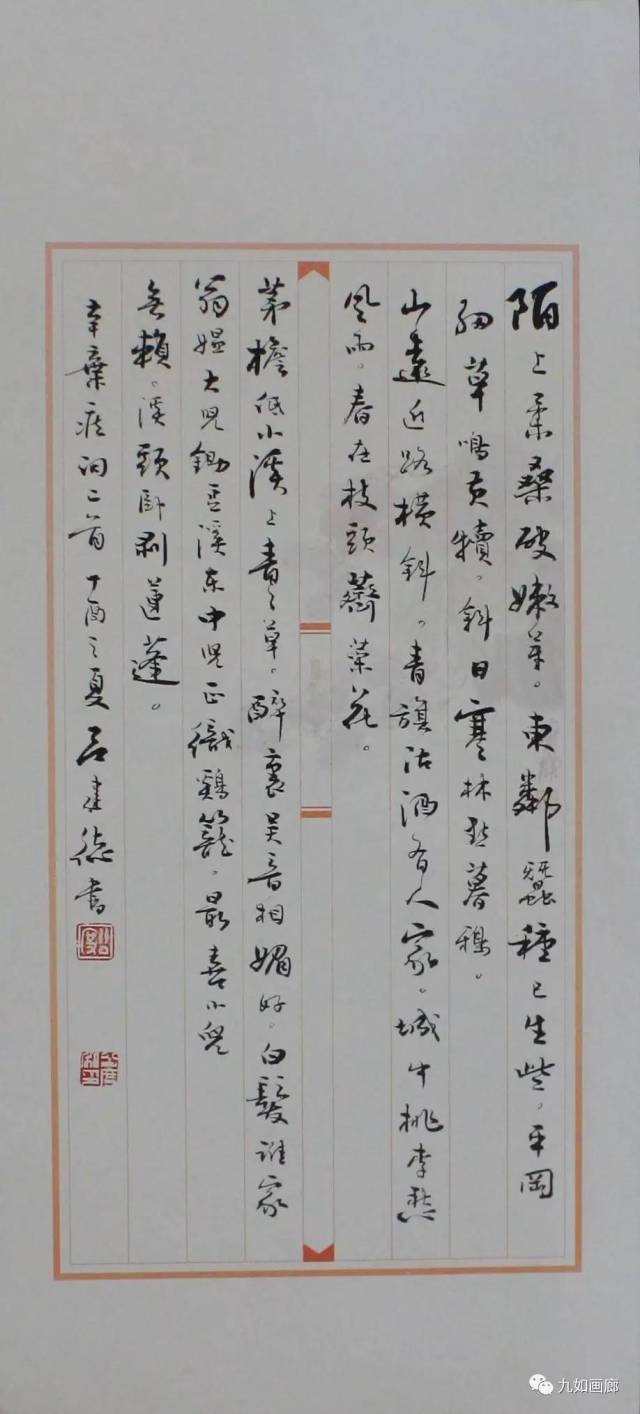 陌上柔桑破嫩芽。東鄰蠶種已生些。平岡
細草鳴黃犢。斜日寒林點暮鴉。
山遠近路橫斜。青旗沽酒有人家。城中桃李愁
風雨。春在枝頭薺菜花。
茅檐低小溪上青々草。醉裏吳音相媚好。白髮誰家
翁媼大兒鋤豆溪東中兒正織鷄籠。最喜小兒
無賴。溪頭卧剝蓮蓬。
辛棄疾詞二首 丁酉之夏 吕建德書
九如画廊